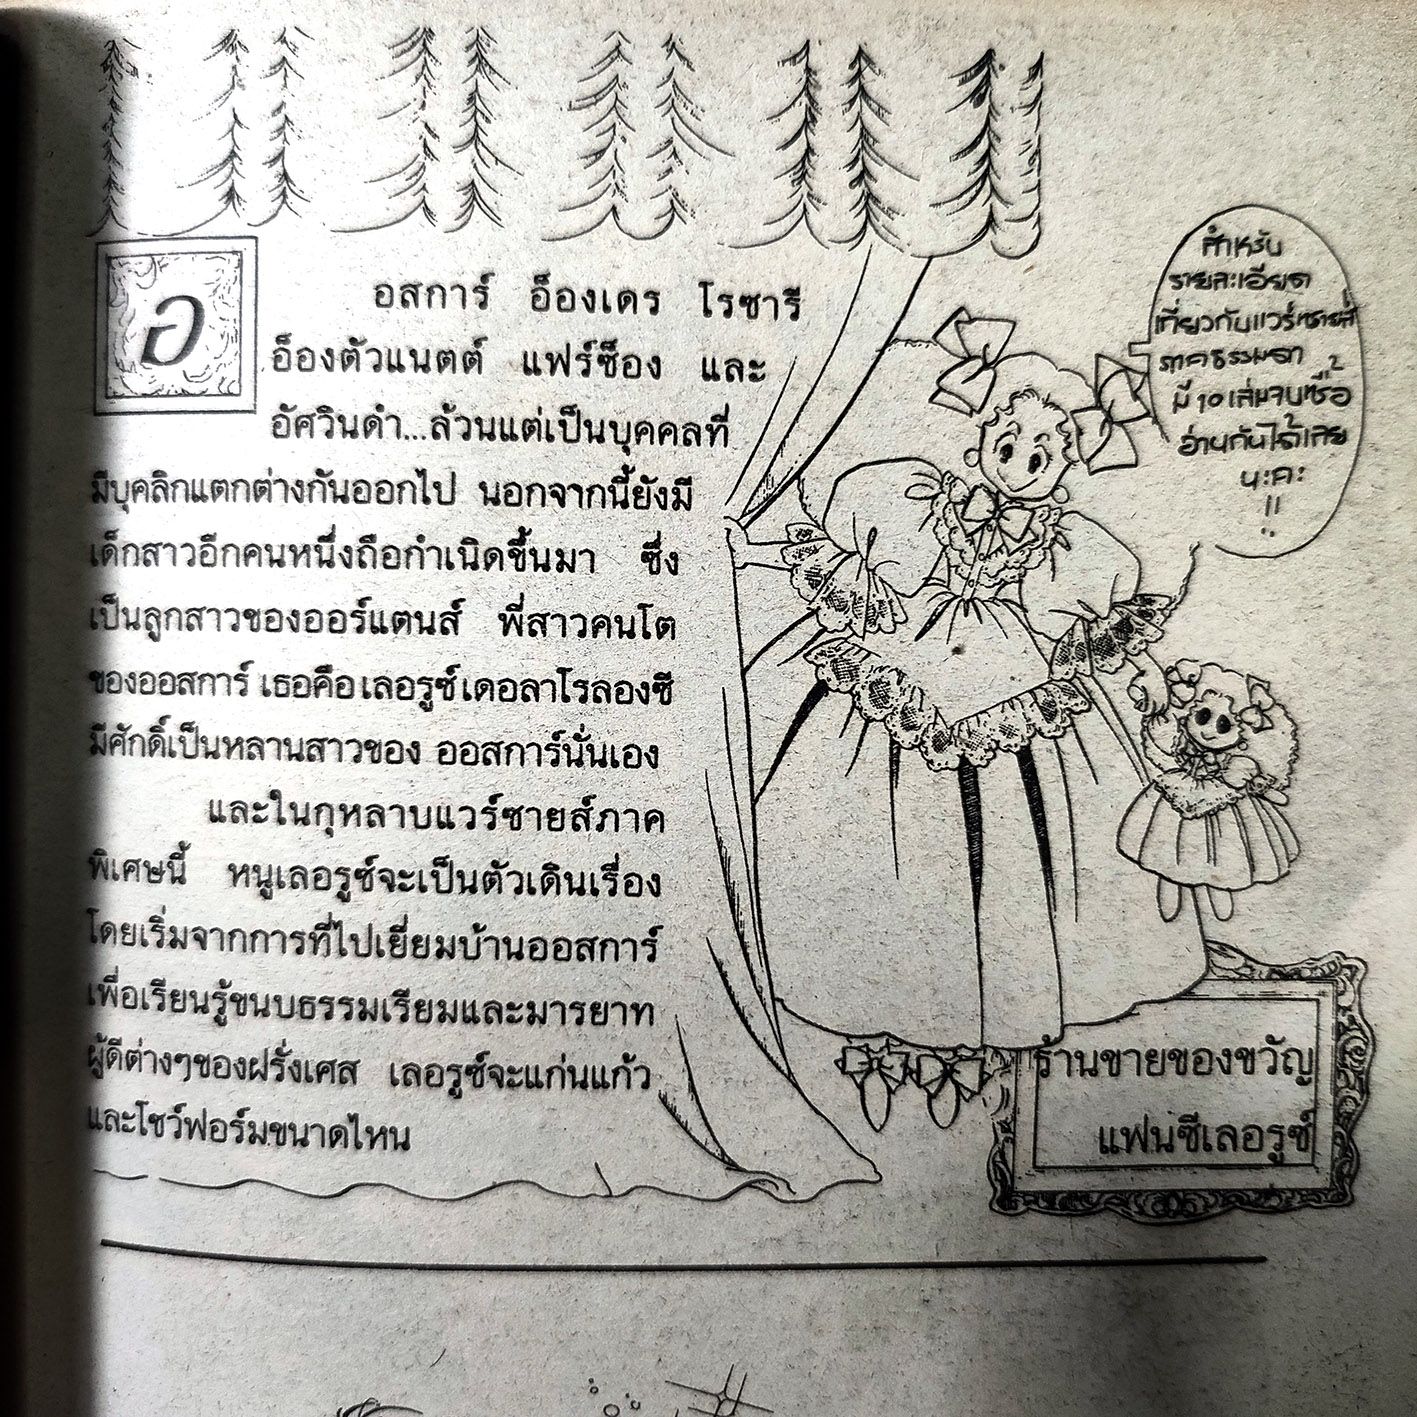 อ
อสการ์ อ็องเดร โรซารี
อ็องตัวแนตต์ แฟร์ซ็อง และ
อัศวินดำ...ล้วนแต่เป็นบุคคลที่
มีบุคลิกแตกต่างกันออกไป นอกจากนี้ยังมี
เด็กสาวอีกคนหนึ่งถือกำเนิดขึ้นมา ซึ่ง
เป็นลูกสาวของออร์แตนส์ พี่สาวคนโต
ของออสการ์ เธอคือเลอรูซ์เดอลาโรลองซี
มีศักดิ์เป็นหลานสาวของ ออสการ์นั่นเอง
และในกุหลาบแวร์ซายส์ภาค
พิเศษนี้ หนูเลอรูซ์จะเป็นตัวเดินเรื่อง
โดยเริ่มจากการที่ไปเยี่ยมบ้านออสการ์
เพื่อเรียนรู้ขนบธรรมเรียมและมารยาท
ผู้ดีต่างๆของฝรั่งเศส เลอรูซ์จะแก่นแก้ว
และโชว์ฟอร์มขนาดไหน
สำหรับ
รายละเอียด
เกี่ยวกับแวร์ซายส์
ภาคธรรมดา
มี 10 เล่มจบซื้อ
อ่านกันได้เลย
นะคะ
!!
ร้านขายของขวัญ
แฟนซีเลอรูซ์